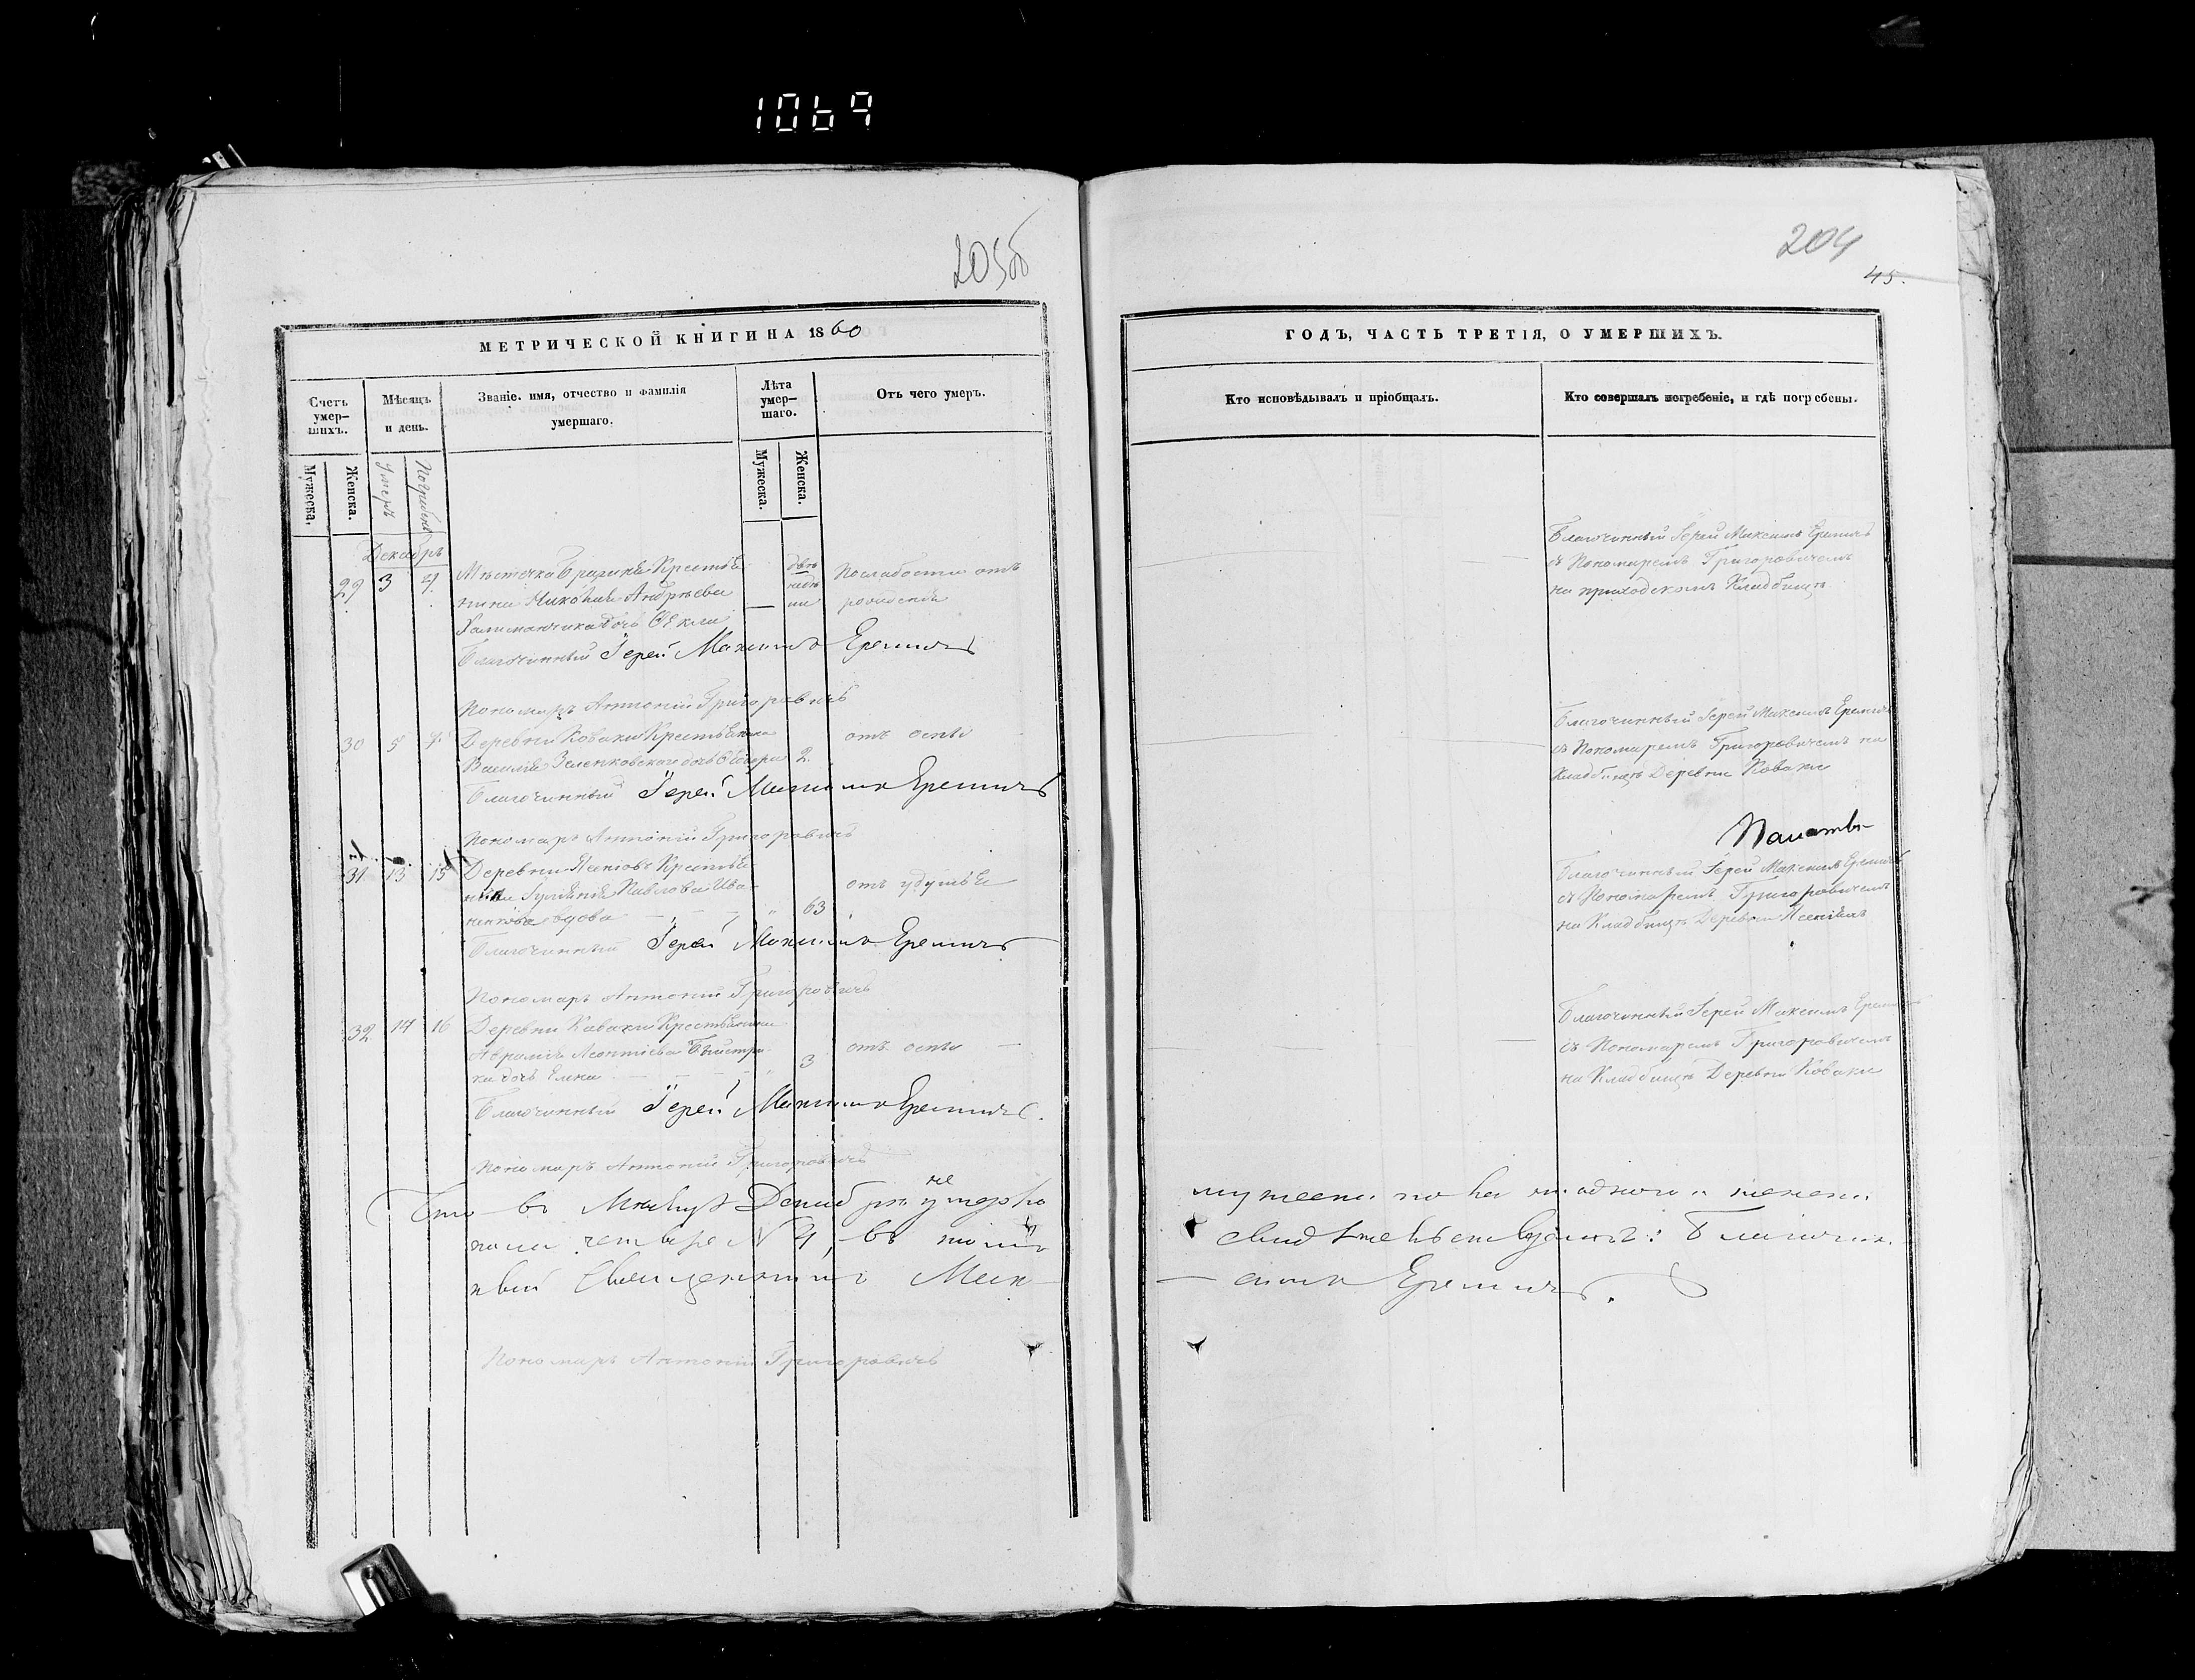 1069
203об
204
45.
МЕТРИЧЕСКОЙ КНИГИ НА 1860
ГОДЪ, ЧАСТЬ ТРЕТІЯ, О УМЕРШИХЪ.
Счетъ умер-
шихъ.
Мужеска.
Женска.
Мѣсяцъ
и день.
Умеръ
Погребенъ
Званіе. имя, отчество и фамилія
умершаго.
Лѣта
умер-
шаго.
Мужеска.
Женска.
Отъ чего умеръ.
Кто исповѣдывалъ и пріобщалъ.
Кто совершалъ погребеніе, и гдѣ погребены.
Декабрь
29 3 4. Мѣстечка Брагина Крестья
нина Николая Андреева
дочь Фекла
двѣ
недѣ
ли
Послабости отъ
рожденія
Благочинный Іерей Максимъ Еремичъ
съ Пономаремъ Григоровичемъ
на приходскомъ Кладбищѣ
Благочинный Іерей Максимъ Еремичъ
Пономарь Антоній Григоровичъ
30 5 7. Деревни Коваки Крестьянина
Василія Зеленковскаго дочь 2.
отъ оспы
Благочинный Іерей Максимъ Еремичъ
съ Пономаремъ Григоровичемъ на
Кладбищѣ Деревни Коваки
Благочинный Іерей Максимъ Еремичъ
Пономарь Антоній Григоровичъ
31 13 15 Деревни Крестья
Павлова Ива
вдова 63
отъ удушья
Благочинный Іерей Максимъ Еремичъ
съ Пономаремъ Григоровичемъ
на Кладбищѣ Деревни
Благочинный Іерей Максимъ Еремичъ
Пономарь Антоній Григоровичъ
32 14 16 Деревни Коваки Крестьянина
Авраамія Леонтіева Быстри
ка дочь Елена 3
отъ оспы
Благочинный Іерей Максимъ Еремичъ
съ Пономаремъ Григоровичемъ
на Кладбищѣ Деревни Коваки
Благочинный Іерей Максимъ Еремичъ.
Пономарь Антоній Григоровичъ
Что въ Мѣсяцѣ Декабрѣ не умерло мужеска пола ни одного а женска
пола четыре № 4, въ томъ свидѣтельствуемъ: Благочин.
ный Священникъ Мак-
симъ Еремичъ.
Пономарь Антоній Григоровичъ